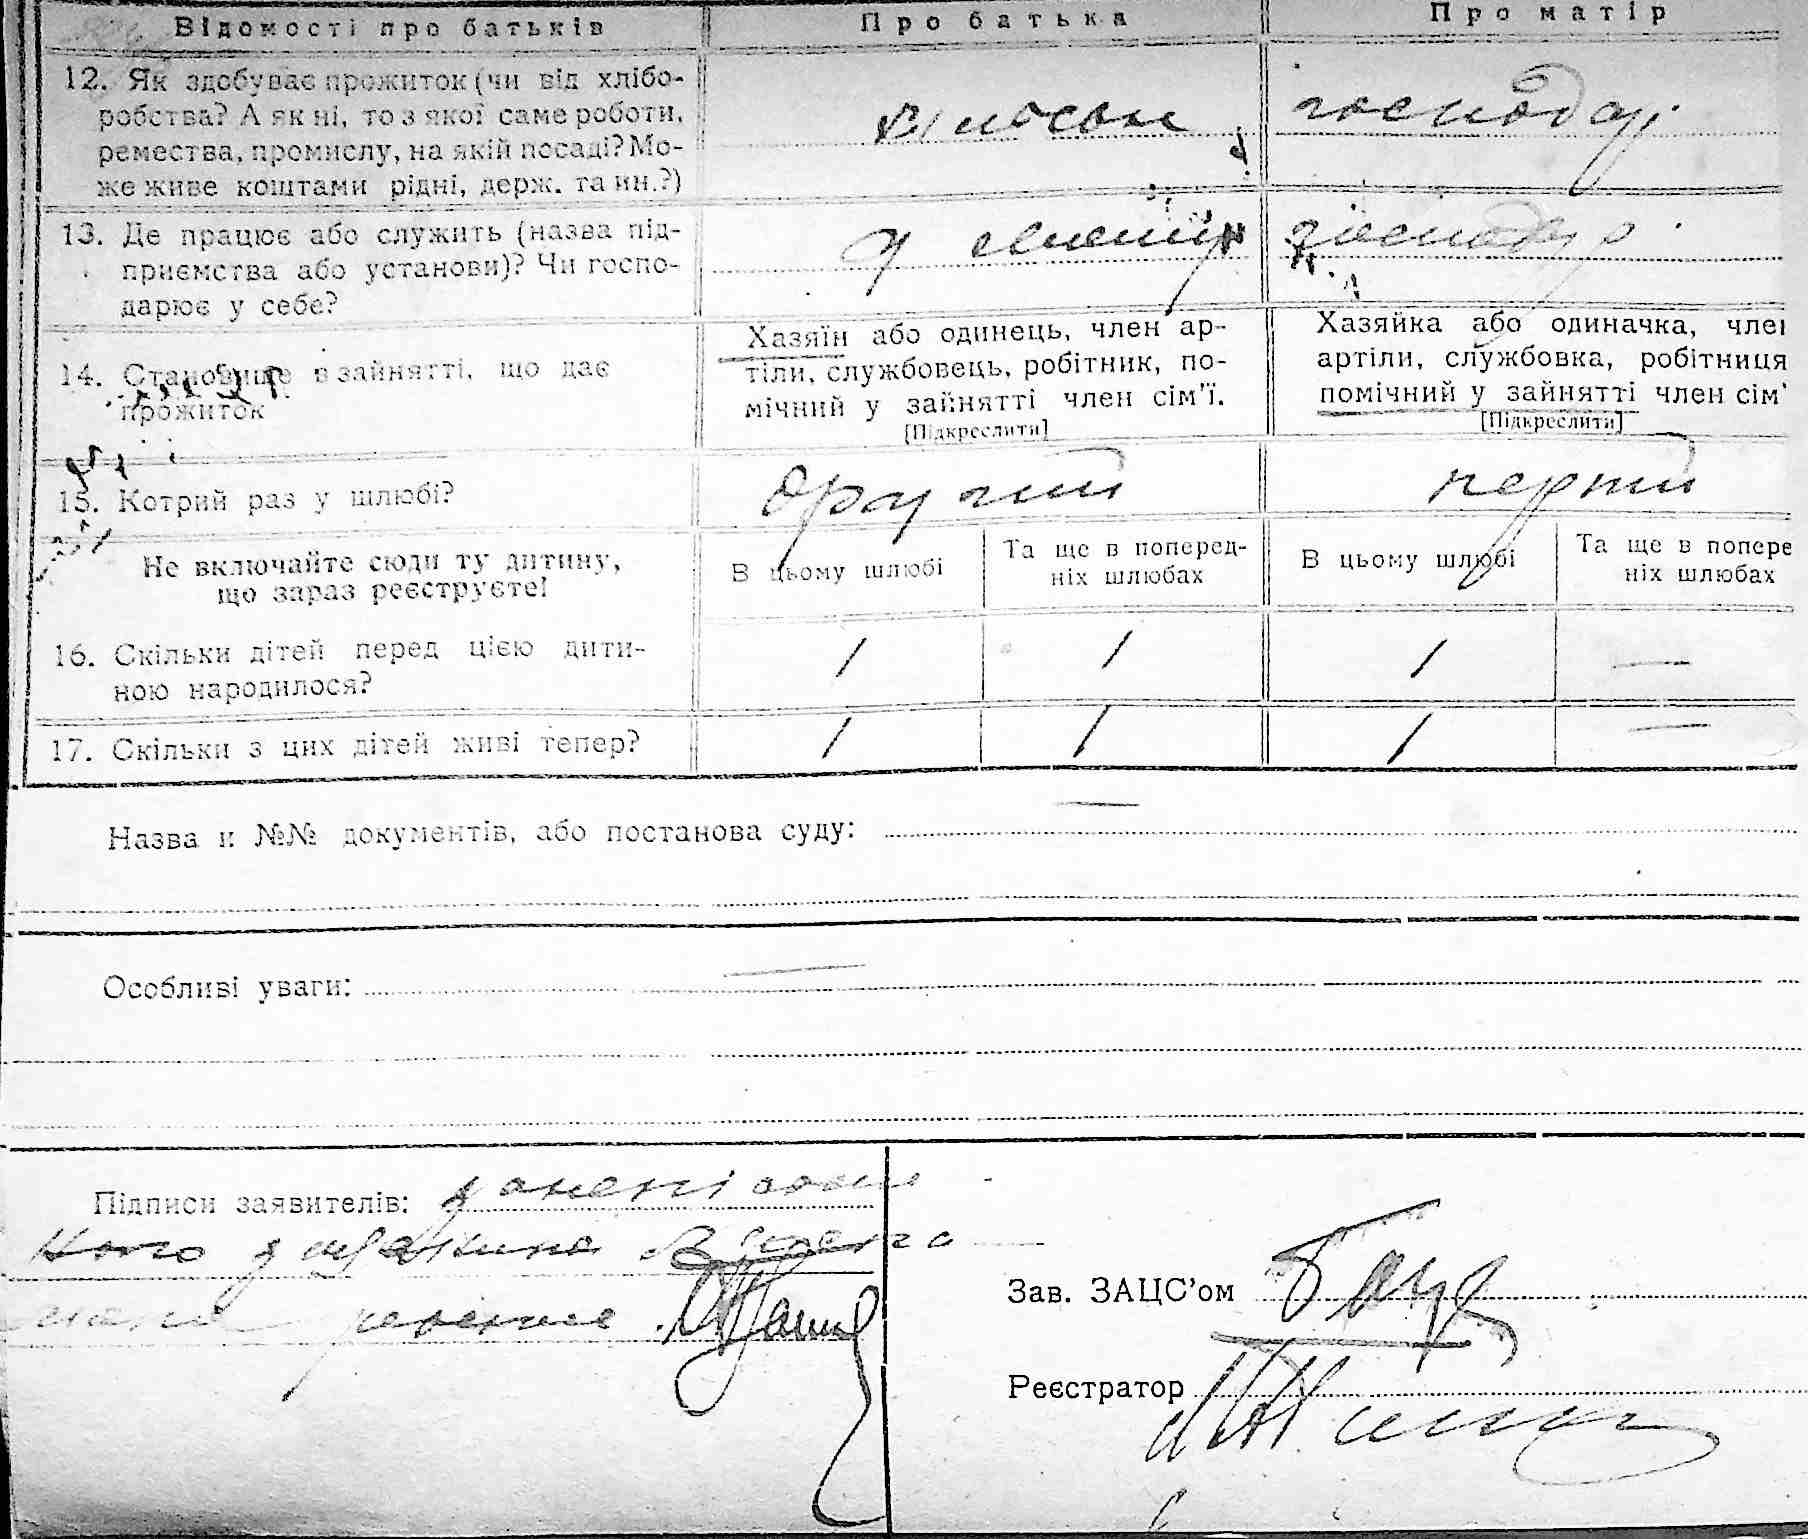 Відомості про батьків
Про батька
Про матір
12. Як здобуває прожиток (чи від хлібо-
робства? А як ні, то з якої саме роботи,
ремества, промислу, на якій посаді? Мо-
же живе коштами рідні, держ. та ин.?)
господар
13. Де працює або служить (назва під-
приємства або установи)? Чи госпо-
дарює у себе?
у господар
14. Становище в зайнятті, що дає
прожиток
Хазяїн або одинець, член ар-
тіли, службовець, робітник, по-
мічний у зайнятті член сім'ї.
[Підкреслити]
Хазяйка або одиначка, член
артіли, службовка, робітниця
помічний у зайнятті член сім'
[Підкреслити]
15. Котрий раз у шлюбі?
другий
перший
Не включайте сюди ту дитину,
що зараз реєструєте!
В цьому шлюбі
Та ще в поперед-
ніх шлюбах
В цьому шлюбі
Та ще в попере
ніх шлюбах
16. Скільки дітей перед цією дити-
ною народилося?
1 1 1 —
17. Скільки з цих дітей живі тепер?
1 1 1 —
Назва и №№ документів, або постанова суду: —
Особливі уваги: —
Підписи заявителів:
Зав. ЗАЦС'ом
Реєстратор